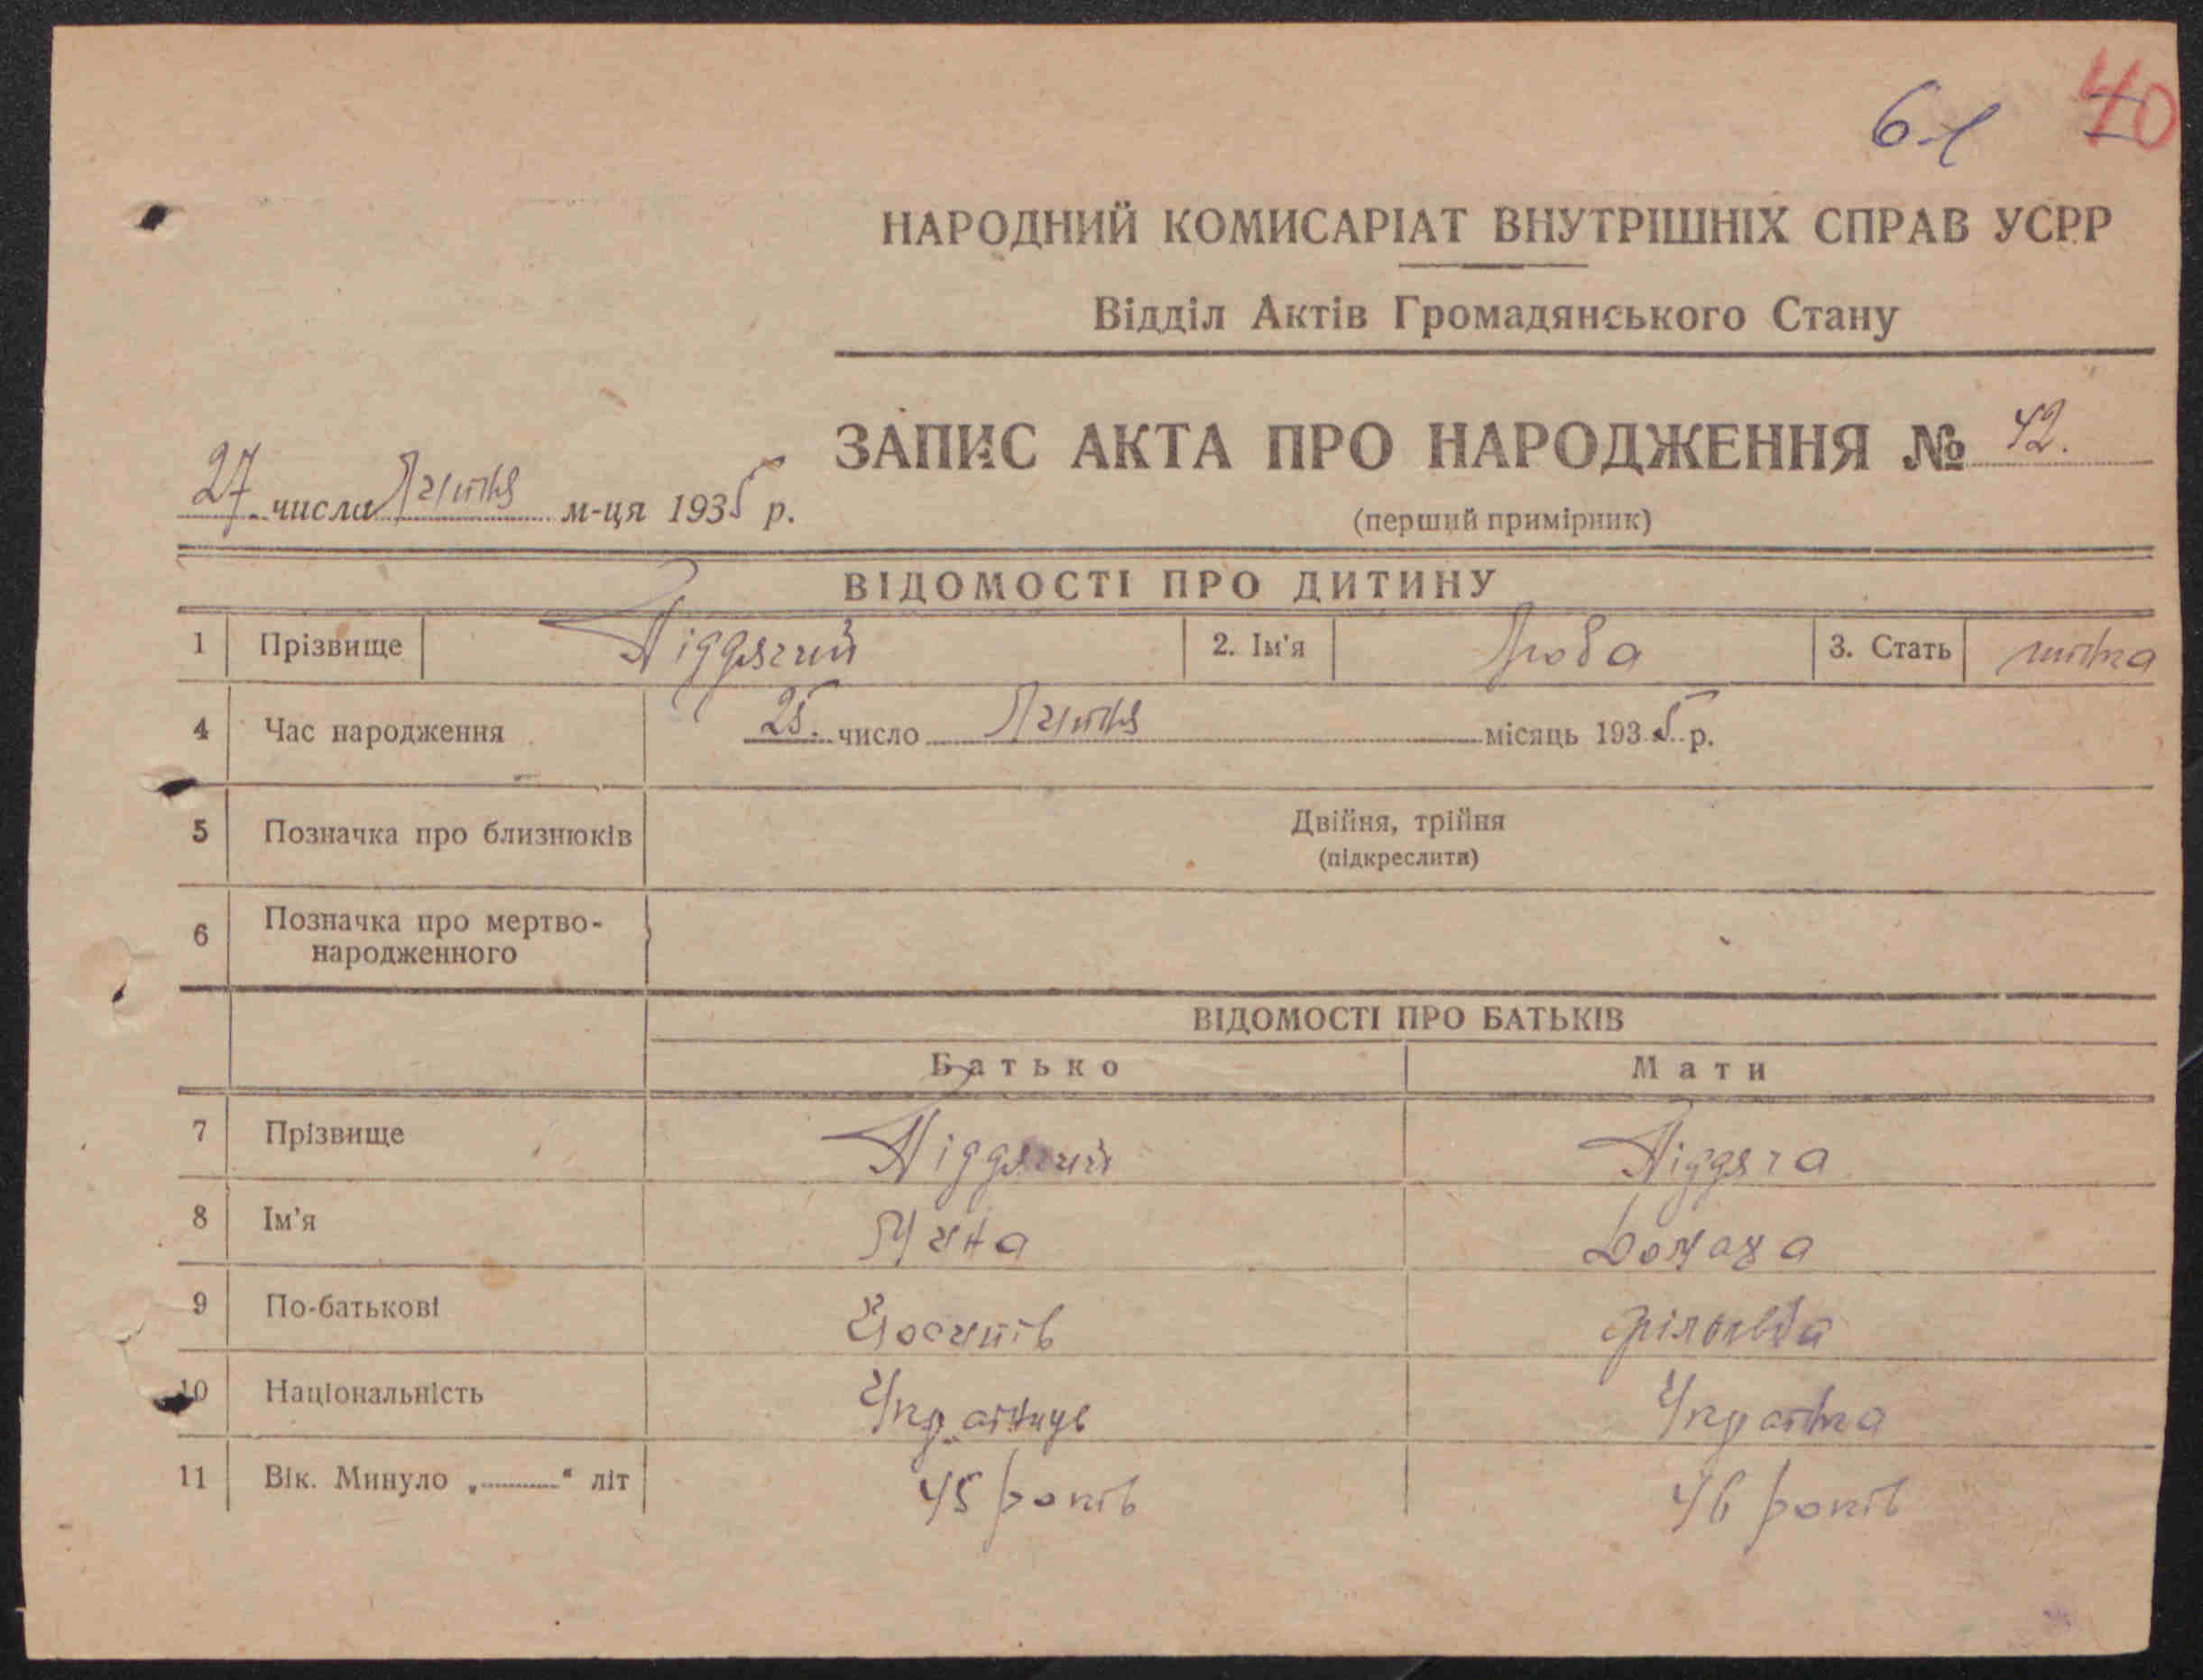 40
НАРОДНИЙ КОМИСАРІАТ ВНУТРІШНІХ СПРАВ УСРР
Відділ Актів Громадянського Стану
ЗАПИС АКТА ПРО НАРОДЖЕННЯ № 42.
27 числа м-ця 1935 р.
(перший примірник)
ВІДОМОСТІ ПРО ДИТИНУ
1 Прізвище Піддягий 2. Ім'я Люба 3. Стать
4 Час народження 25. число місяць 1935 р.
5 Позначка про близнюків Двійня, трійня
(підкреслити)
6 Позначка про мертво-
народженного
ВІДОМОСТІ ПРО БАТЬКІВ
Батько Мати
7 Прізвище Піддягий Піддяга
8 Ім'я Мина Домаха
9 По-батькові Йосипів
10 Національність Українець Українка
11 Вік. Минуло „ “ літ 45 років 46 років